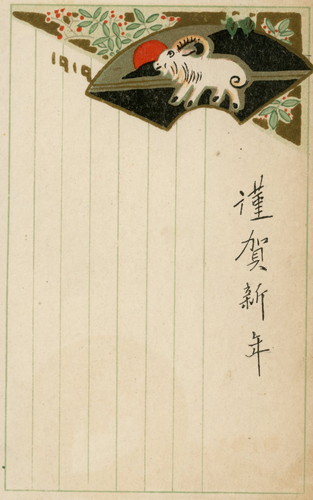 1919
謹賀新年